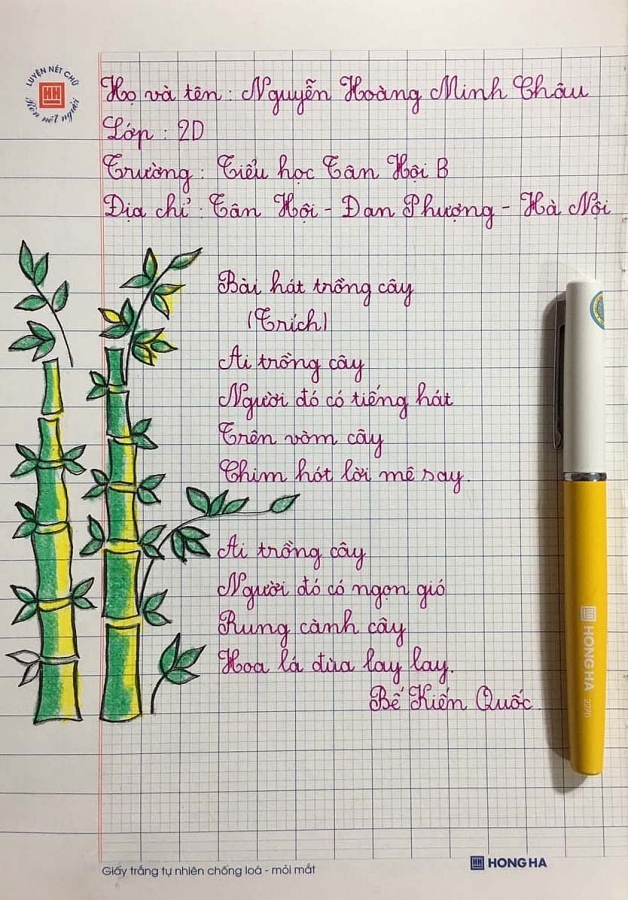 LUYỆN NẾT CHỮ
Rèn nết người
Họ và tên : Nguyễn Hoàng Minh Châu
Lớp : 2D
Trường : Tiểu học Tân Hội B
Địa chỉ : Tân Hội - Đan Phượng - Hà Nội
Bài hát trồng cây
(Trích)
Ai trồng cây
Người đó có tiếng hát
Trên vòm cây
Chim hót lời mê say.
Ai trồng cây
Người đó có ngọn gió
Rung cành cây
Hoa lá đùa lay lay.
Bế Kiến Quốc.
HONG HA
Giấy trắng tự nhiên chống loá - mỏi mắt
HONG HA